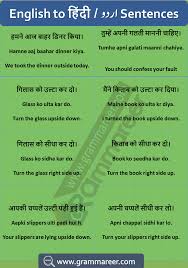 English to हिंदी / اردو Sentences
हमने आज बाहर डिनर किया।
Hamne aaj baahar dinner kiya.
We took the dinner outside today.
तुम्हे अपनी गलती माननी चाहिए।
Tumhe apni galati maanni chahiye.
You should confess your fault.
गिलास को उल्टा कर दो।
Glass ko ulta kar do.
Turn the glass upside down.
मैंने किताब को उल्टा कर दिया।
Maine book ko ulta kr diya.
I turned the book upside down.
गिलास को सीधा कर दो।
Glass ko sidha kar do.
Turn the glass right side up.
किताब को सीधा कर दो।
Book ko seedha kar do.
Turn the book right side up.
आपकी चप्पलें उल्टी पड़ी हुई हैं।
Aapki slippers ulti padi hui h.
Your slippers are lying upside down.
अपनी चप्पलें सीधी कर लो।
Apni chappal sidhi kar lo.
Turn your slippers right side up.
www.grammareer.com